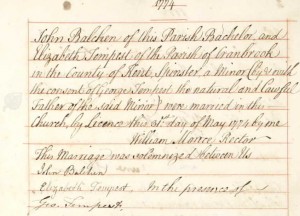 1774
John Balchen of this Parish Bachelor and
Elizabeth Tempest of the Parish of Cranbrook
in the County of Kent, Spinster, a Minor (by & with
the consent of George Tempest the natural and lawful
Father of the said Minor) were married in this
Church, by Licence this day of May 1774 by me
William Rector
This Marriage was solemnized between Us
John Balchen
Elizabeth Tempest In the presence of
Geo. Tempest.